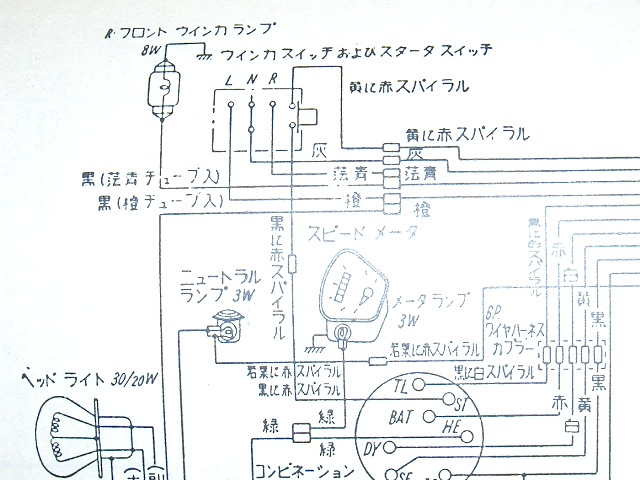 R.フロント ウインカ ランプ
8W
ウインカ スイッチ および スタータ スイッチ
L N R
黄に赤スパイラル
黄に赤スパイラル
灰
灰
黒(薄青チューブ入)
薄青
薄青
黒(橙チューブ入)
橙
橙
黒に赤スパイラル
スピード メータ
黒に白スパイラル
赤
白
黄
黒
ニュートラル
ランプ 3W
メータ ランプ
3W
6P
ワイヤハーネス
カプラー
若葉に赤スパイラル
若葉に赤スパイラル
黒に赤スパイラル
黒に白スパイラル
ヘッド ライト 30/20W
TL
ST
BAT
HE
DY
赤
白
黄
黒
緑
緑
緑
コンビネーション